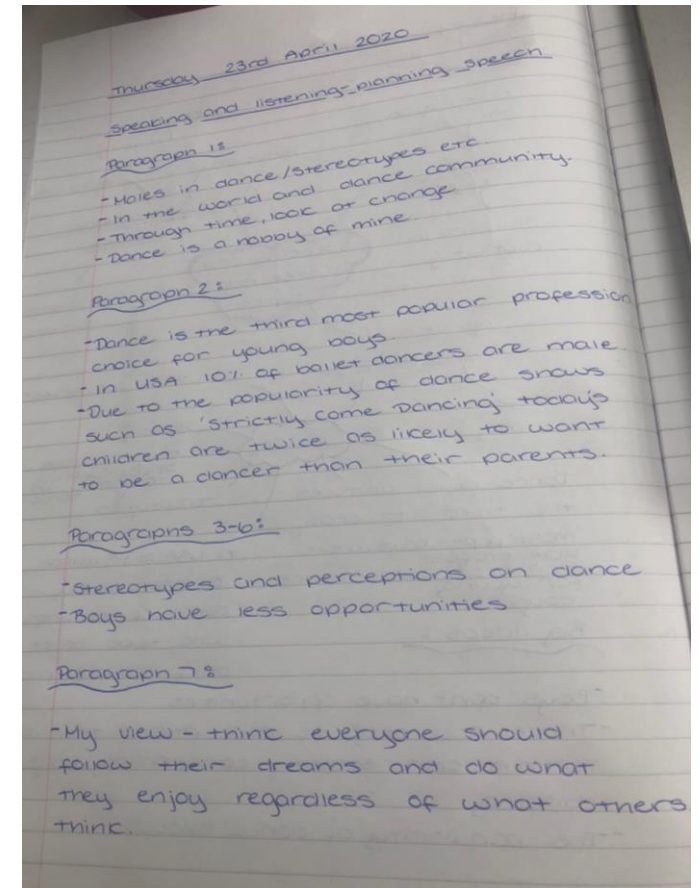 Thursday 23rd April 2020
Speaking and listening-planning speech
Paragraph 1:
- Males in dance/stereotypes etc.
- In the world and dance community.
- Through time, look at change
- Dance is a hobby of mine.
Paragraph 2:
- Dance is the third most popular profession
choice for young boys.
- In USA 10% of ballet dancers are male.
- Due to the popularity of dance shows
such as 'Strictly Come Dancing' today's
children are twice as likely to want
to be a dancer than their parents.
Paragraphs 3-6:
- Stereotypes and perceptions on dance
- Boys have less opportunities
Paragraph 7:
- My view - think everyone should
follow their dreams and do what
they enjoy regardless of what others
think.